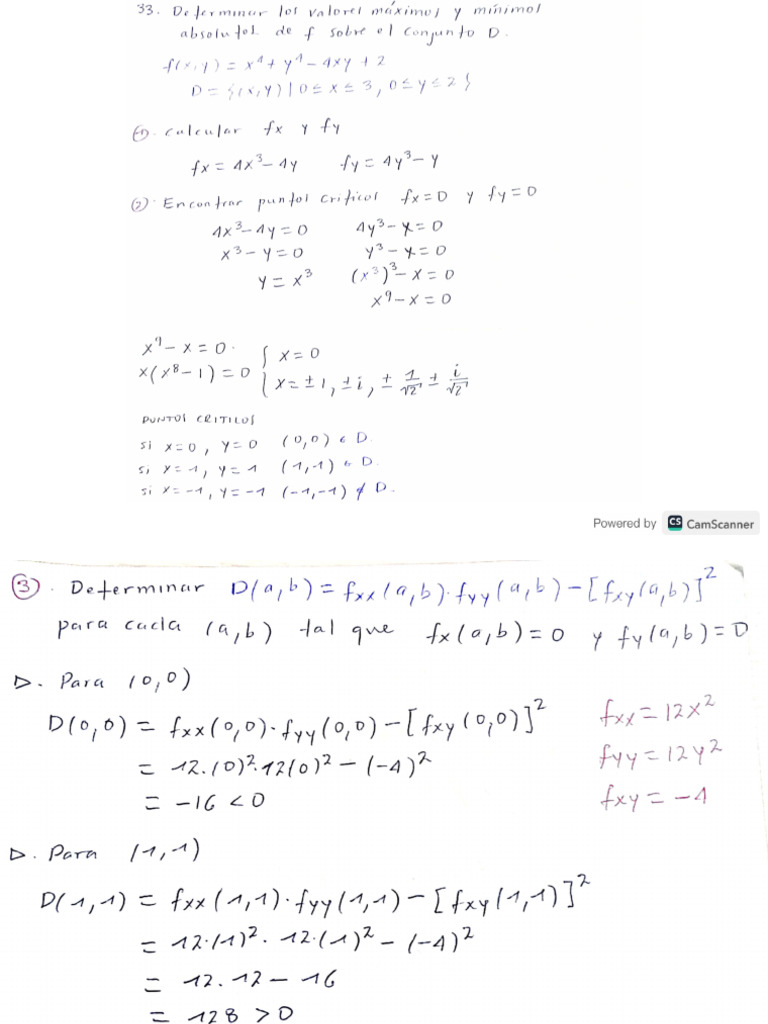 33. Determinar los valores máximos y mínimos
absolutos de f sobre el conjunto D.
f(x,y) = x⁴ + y⁴ - 4xy + 2
D = {(x,y) | 0 ≤ x ≤ 3, 0 ≤ y ≤ 2}
① Calcular fx y fy
fx = 4x³ - 4y fy = 4y³ - y
② Encontrar puntos criticos fx = 0 y fy = 0
4x³ - 4y = 0 4y³ - x = 0
x³ - y = 0 y³ - x = 0
y = x³ (x³)³ - x = 0
x⁹ - x = 0
x⁹ - x = 0
x(x⁸ - 1) = 0 { x = 0
x = ±1, ±i, ± 1/√2 ± i/√2
PUNTOS CRITICOS
si x = 0, y = 0 (0,0) ∈ D.
si x = 1, y = 1 (1,1) ∈ D.
si x = -1, y = -1 (-1,-1) ∉ D.
Powered by CS CamScanner
③. Determinar D(a,b) = fxx(a,b)·fyy(a,b) - [fxy(a,b)]²
para cada (a,b) tal que fx(a,b) = 0 y fy(a,b) = 0
▷. Para (0,0)
D(0,0) = fxx(0,0)·fyy(0,0) - [fxy(0,0)]² fxx = 12x²
= 12·(0)²·12(0)² - (-4)² fyy = 12y²
= -16 < 0 fxy = -4
▷. Para (1,1)
D(1,1) = fxx(1,1)·fyy(1,1) - [fxy(1,1)]²
= 12·(1)²·12·(1)² - (-4)²
= 12·12 - 16
= 128 > 0